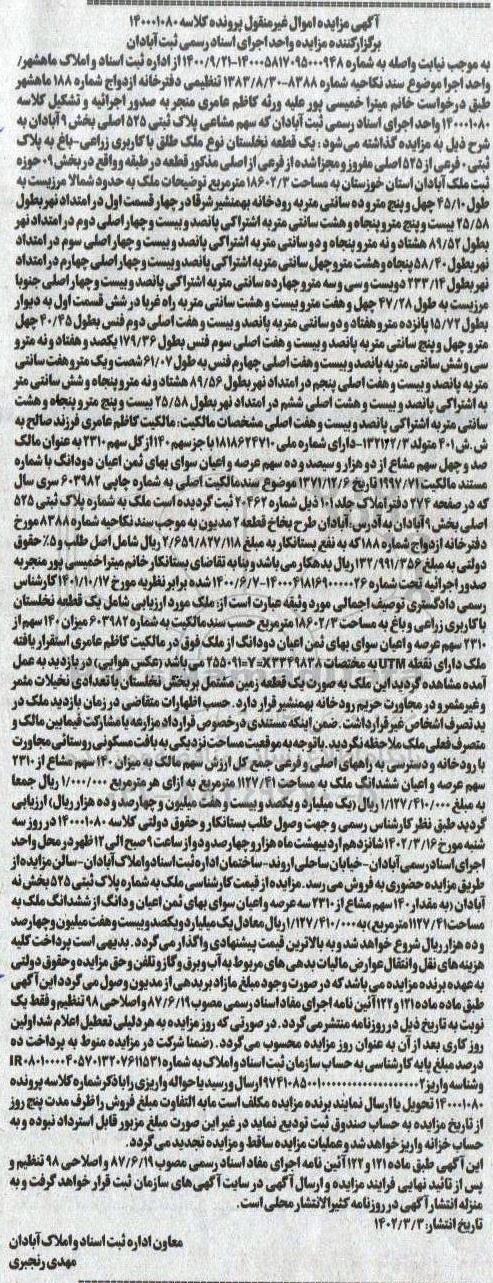 آگهی مزایده اموال غیرمنقول پرونده کلاسه ۱۴۰۰۰۱۰۸۰
برگزارکننده مزایده واحد اجرای اسناد رسمی ثبت آبادان
به موجب نیابت واصله به شماره ۱۴۰۰۰۵۸۱۷۰۹۵۰۰۰۹۴۸-۱۴۰۰/۹/۲۱ از اداره ثبت اسناد و املاک ماهشهر/
واحد اجرا موضوع سند نکاحیه شماره ۸۳۸۸-۱۳۸۳/۸/۳۰ تنظیمی دفترخانه ازدواج شماره ۱۸۸ ماهشهر
طبق درخواست خانم میترا خمیسی پور علیه ورثه کاظم عامری منجر به صدور اجرائیه و تشکیل کلاسه
۱۴۰۰۰۱۰۸۰ واحد اجرای اسناد رسمی ثبت آبادان که سهم مشاعی پلاک ثبتی ۵۲۵ اصلی بخش ۹ آبادان به
شرح ذیل به مزایده گذاشته می شود: یک قطعه نخلستان نوع ملک طلق با کاربری زراعی-باغ به پلاک
ثبتی ۰ فرعی از ۵۲۵ اصلی مفروز و مجزا شده از فرعی از اصلی مذکور قطعه در طبقه و واقع در بخش ۰۹ حوزه
ثبت ملک آبادان استان خوزستان به مساحت ۱۸۶۰۲/۳ مترمربع توضیحات ملک به حدود شمالا مرزیست به
طول ۴۵/۱۰ چهل و پنج متر و ده سانتی متر به رودخانه بهمنشیر شرقا در چهار قسمت اول در امتداد نهر بطول
۲۵/۵۸ بیست و پنج متر و پنجاه و هشت سانتی متر به اشتراکی پانصد و بیست و چهار اصلی دوم در امتداد نهر
بطول ۸۹/۵۲ هشتاد و نه متر و پنجاه و دو سانتی متر به اشتراکی پانصد و بیست و چهار اصلی سوم در امتداد
نهر بطول ۵۸/۴۰ پنجاه و هشت متر و چهل سانتی متر به اشتراکی پانصد و بیست و چهار اصلی چهارم در امتداد
نهر بطول ۲۳۳/۱۴ دویست و سی و سه متر و چهارده سانتی متر به اشتراکی پانصد و بیست و چهار اصلی جنوبا
مرزیست به طول ۴۷/۲۸ چهل و هفت متر و بیست و هشت سانتی متر به راه غربا در شش قسمت اول به دیوار
بطول ۱۵/۷۲ پانزده متر و هفتاد و دو سانتی متر به پانصد و بیست و هفت اصلی دوم فنس بطول ۴۰/۴۵ چهل
متر و چهل و پنج سانتی متر به پانصد و بیست و هفت اصلی سوم فنس بطول ۱۷۹/۳۶ یکصد و هفتاد و نه متر و
سی و شش سانتی متر به پانصد و بیست و هفت اصلی چهارم فنس به طول ۶۱/۰۷ شصت و یک متر و هفت سانتی
متر به پانصد و بیست و هفت اصلی پنجم در امتداد نهر بطول ۸۹/۵۶ هشتاد و نه متر و پنجاه و شش سانتی متر
به اشتراکی پانصد و بیست و هشت اصلی ششم در امتداد نهر بطول ۲۵/۵۸ بیست و پنج متر و پنجاه و هشت
سانتی متر به اشتراکی پانصد و بیست و هفت اصلی مشخصات مالکیت: مالکیت کاظم عامری فرزند صالح به
ش.ش ۴۰۱ متولد ۱۳۲۱/۲/۳- دارای شماره ملی ۱۸۱۸۶۲۴۷۱۰ با جز سهم ۱۴۰ از کل سهم ۲۳۱۰ به عنوان مالک
صد و چهل سهم مشاع از دو هزار و سیصد و ده سهم عرصه و اعیان سوای بهای ثمن اعیان دودانگ با شماره
مستند مالکیت ۱۹۹۷/۷۱ تاریخ ۱۳۷۱/۱۲/۶ موضوع سند مالکیت اصلی به شماره چاپی ۶۰۳۹۸۲ سری سال
که در صفحه ۲۷۴ دفتر املاک جلد ۱۰۱ ذیل شماره ۲۰۴۶۲ ثبت گردیده است ملک به شماره پلاک ثبتی ۵۲۵
اصلی بخش ۹ آبادان به آدرس: آبادان طرح بخاخ قطعه ۲ مدیون به موجب سند نکاحیه شماره ۸۳۸۸ مورخ
دفترخانه ازدواج شماره ۱۸۸ که به نفع بستانکار به مبلغ ۲/۶۵۹/۸۲۷/۱۱۸ ریال شامل اصل طلب و ۵٪ حقوق
دولتی به مبلغ ۱۳۲/۹۹۱/۳۵۶ ریال بدهکار می باشد و بنا به تقاضای بستانکار خانم میترا خمیسی پور منجر به
صدور اجرائیه تحت شماره ۱۴۰۰۰۴۱۸۱۶۹۰۰۰۰۲۶-۱۴۰۰/۶/۷ شده برابر نظریه مورخ ۱۴۰۱/۱۰/۱۷ کارشناس
رسمی دادگستری توصیف اجمالی مورد وثیقه عبارت است از: ملک مورد ارزیابی شامل یک قطعه نخلستان
با کاربری زراعی و باغ به مساحت ۱۸۶۰۲/۳ مترمربع حسب سند مالکیت به شماره ۶۰۳۹۸۲ میزان ۱۴۰ سهم از
۲۳۱۰ سهم عرصه و اعیان سوای بهای ثمن اعیان دودانگ از ملک فوق در مالکیت کاظم عامری استقرار یافته
ملک دارای نقطه UTM به مختصات X۳۳۴۹۸۳۸=Y=۲۵۵۰۹۱ می باشد (عکس هوایی) در بازدید به عمل
آمده مشاهده گردید این ملک به صورت یک قطعه زمین مشتمل بر بخش نخلستان با تعدادی نخیلات مثمر
و غیرمثمر و در مجاورت حریم رودخانه بهمنشیر قرار دارد. حسب اظهارات متقاضی در زمان بازدید ملک در
ید تصرف اشخاص غیر قرار داشت. ضمن اینکه مستندی در خصوص قرارداد مزارعه یا مشارکت فیمابین مالک و
متصرف فعلی ملک ملاحظه نگردید. با توجه به موقعیت مساحت نزدیکی به بافت مسکونی روستائی مجاورت
با رودخانه و دسترسی به راههای اصلی و فرعی جمع کل ارزش سهم مالک به میزان ۱۴۰ سهم مشاع از ۲۳۱۰
سهم عرصه و اعیان ششدانگ ملک به مساحت ۱۱۲۷/۴۱ مترمربع به ازای هر مترمربع ۱/۰۰۰/۰۰۰ ریال جمعا
به مبلغ ۱/۱۲۷/۴۱۰/۰۰۰ ریال (یک میلیارد و یکصد و بیست و هفت میلیون و چهارصد و ده هزار ریال) ارزیابی
گردید طبق نظر کارشناس رسمی و جهت وصول طلب بستانکار و حقوق دولتی کلاسه ۱۴۰۰۰۱۰۸۰ در روز سه
شنبه مورخ ۱۴۰۲/۳/۱۶ شانزدهم اردیبهشت ماه هزار و چهارصد و دو از ساعت ۹ صبح الی ۱۲ ظهر در محل واحد
اجرای اسناد رسمی آبادان-خیابان ساحلی اروند-ساختمان اداره ثبت اسناد و املاک آبادان-سالن مزایده از
طریق مزایده حضوری به فروش می رسد. مزایده از قیمت کارشناسی ملک به شماره پلاک ثبتی ۵۲۵ بخش نه
آبادان (به مقدار ۱۴۰ سهم مشاع از ۲۳۱۰ سه عرصه و اعیان سوای بهای ثمن اعیان و دانگ از ششدانگ ملک به
مساحت ۱۱۲۷/۴۱ مترمربع) به ۱/۱۲۷/۴۱۰/۰۰۰ ریال معادل یک میلیارد و یکصد و بیست و هفت میلیون و چهارصد
و ده هزار ریال شروع خواهد شد و به بالاترین قیمت پیشنهادی واگذار می گردد. بدیهی است پرداخت کلیه
هزینه های نقل و انتقال عوارض مالیات بدهی های مربوط به آب و برق و گاز و تلفن و حق مزایده و حقوق دولتی
به عهده برنده مزایده می باشد که در صورت وجود مبلغ مازاد بر بدهی از مدیون وصول می گردد این آگهی
طبق ماده ۱۲۱ و ۱۲۲ آئین نامه اجرای مفاد اسناد رسمی مصوب ۸۷/۶/۱۹ و اصلاحی ۹۸ تنظیم و فقط یک
نوبت به تاریخ ذیل در روزنامه منتشر می گردد. در صورتی که روز مزایده به هر دلیلی تعطیل اعلام شد اولین
روز کاری بعد از آن به عنوان روز مزایده محسوب می گردد. (ضمنا شرکت در مزایده منوط به پرداخت ده
درصد مبلغ پایه کارشناسی به حساب سازمان ثبت اسناد و املاک به شماره IR۰۸۰۱۰۰۰۰۴۰۵۷۰۱۳۲۰۷۶۱۱۵۳۱
۱۴۰۰۰۱۰۸۰ تحویل یا ارسال نمایند برنده مزایده مکلف است مابه التفاوت مبلغ فروش را ظرف مدت پنج روز
از تاریخ مزایده به حساب صندوق ثبت تودیع نماید در غیر این صورت مبلغ مزبور قابل استرداد نبوده و به
حساب خزانه واریز خواهد شد و عملیات مزایده ساقط و مزایده تجدید می گردد.
این آگهی طبق ماده ۱۲۱ و ۱۲۲ آئین نامه اجرای مفاد اسناد رسمی مصوب ۸۷/۶/۱۹ و اصلاحی ۹۸ تنظیم و
پس از تائید نهایی فرایند مزایده و ارسال آگهی در سایت آگهی های سازمان ثبت قرار خواهد گرفت و به
منزله انتشار آگهی در روزنامه کثیرالانتشار محلی است.
تاریخ انتشار: ۱۴۰۲/۳/۳
معاون اداره ثبت اسناد و املاک آبادان
مهدی رنجبری